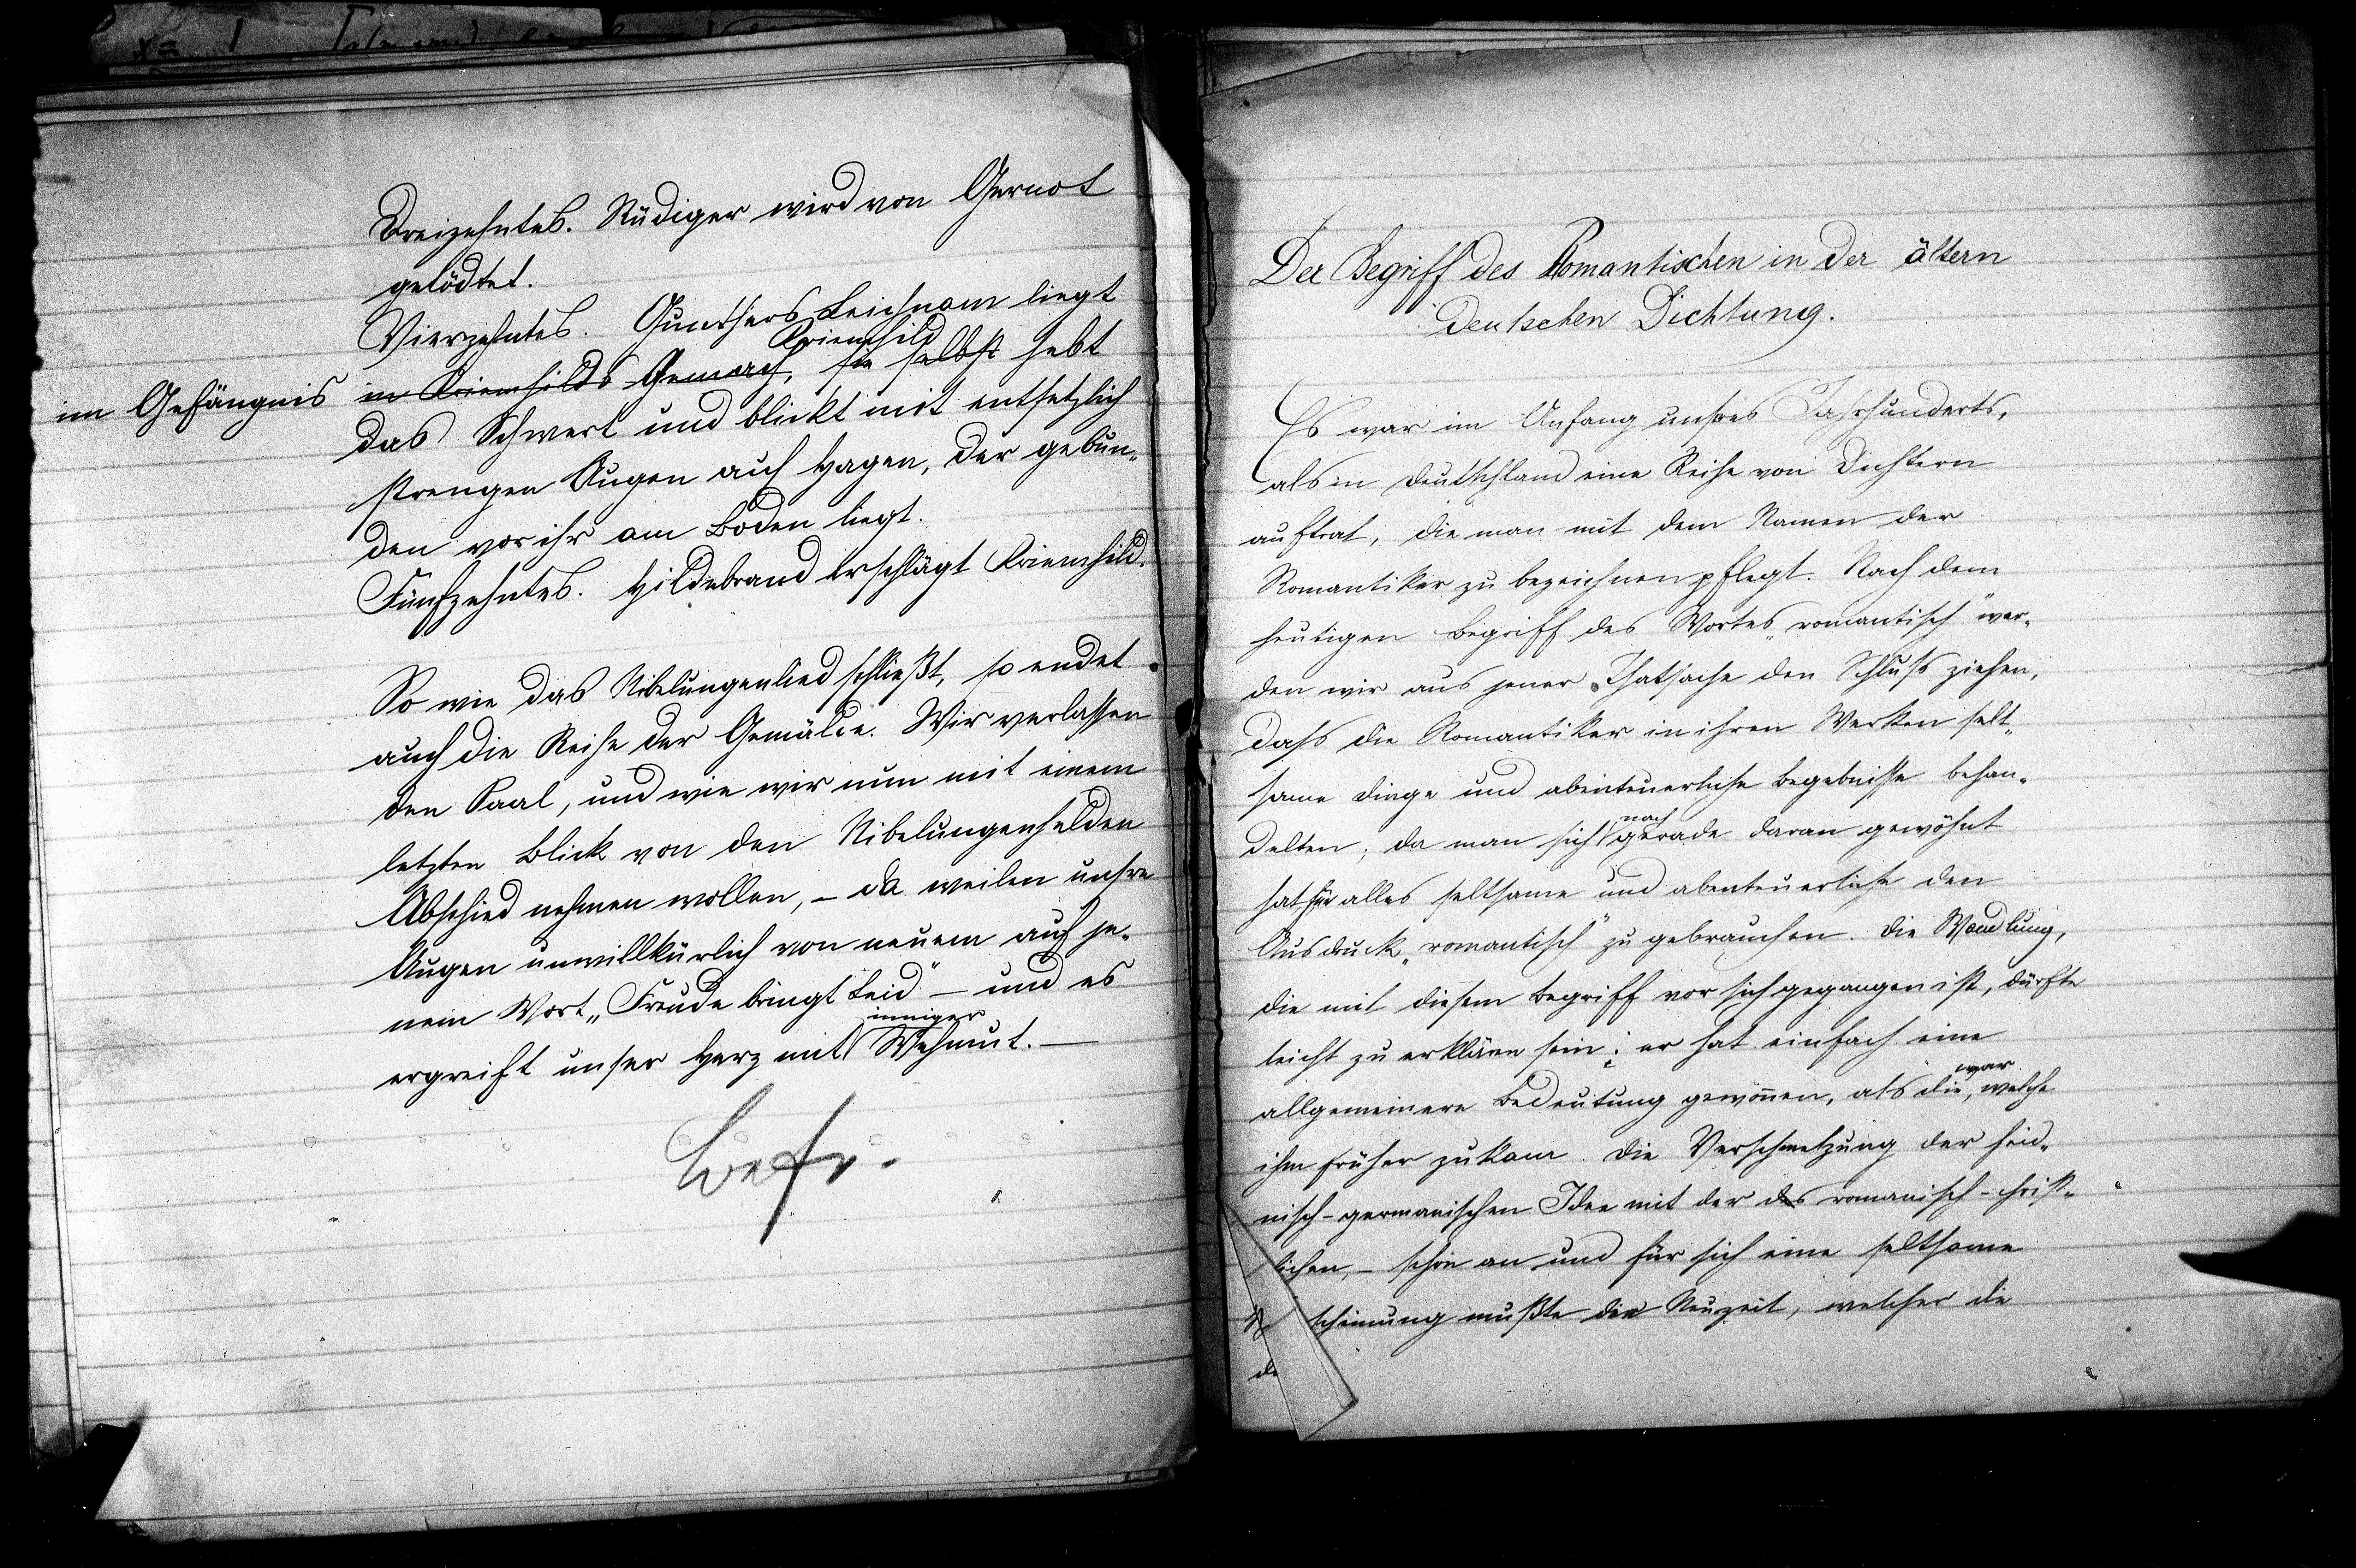 Dreizehntes. Rüdiger wird von Gernot
getödtet.
Vierzehntes. Gunthers Leichnam liegt
Kriemhild
im Gefängnis in Kriemhilds Gemach, sie selbst hebt
das Schwert und blickt mit entsetzlich
strengen Augen auf Hagen, der gebun-
den vor ihr am Boden liegt.
Fünfzehntes. Hildebrand erschlägt Kriemhild.
So wie das Nibelungenlied schließt, so endet
auch die Reihe der Gemälde. Wir verlassen
den Saal, und wie wir nun mit einem
letzten Blick von den Nibelungenhelden
Abschied nehmen wollen, – da weilen unsre
Augen unwillkürlich von neuem auf je-
nem Wort „Freude bringt Leid" – und es
inniger
ergreift unser Herz mit Wehmut. –
Der Begriff des Romantischen in der ältern
deutschen Dichtung.
Es war im Anfang unsres Jahrhunderts,
als in Deutschland eine Reihe von Dichtern
auftrat, die man mit dem Namen der
Romantiker zu bezeichnen pflegt. Nach dem
heutigen Begriff des Wortes „romantisch" wer-
den wir aus jener Thatsache den Schluß ziehen,
daß die Romantiker in ihren Werken selt-
same Dinge und abenteuerliche Begebnisse behan-
nach
delten; da man sich gerade daran gewöhnt
hat für alles seltsame und abenteuerliche den
Ausdruck „romantisch" zu gebrauchen. Die Wandlung,
die mit diesem Begriff vor sich gegangen ist, dürfte
leicht zu erklären sein: er hat einfach eine
war
allgemeinere Bedeutung gewonnen, als die, welche
ihm früher zukam. Die Verschmelzung der heid-
nisch-germanischen Idee mit der des romanisch-christ-
lichen, – schon an und für sich eine seltsame
scheinung mußte die Neuzeit, welcher die
de